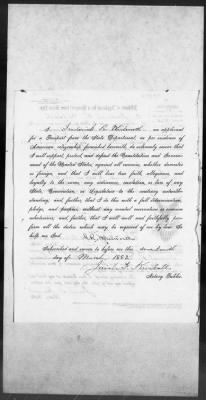 I, Frederick L. Wentworth an applicant
for a Passport from the State Department, as per evidence of
American citizenship furnished herewith, do solemnly swear that
I will support, protect, and defend the Constitution and Govern-
ment of the United States, against all enemies, whether domestic
or foreign, and that I will bear true faith, allegiance, and
loyalty to the same, any ordinance, resolution, or law of any
State, Convention, or Legislature to the contrary notwith-
standing; and further, that I do this with a full determination,
pledge, and purpose, without any mental reservation or evasion
whatsoever; and further, that I will well and faithfully per-
form all the duties which may be required of me by law. So
help me God.
Subscribed and sworn to before me this
day of March 1882
Notary Public.